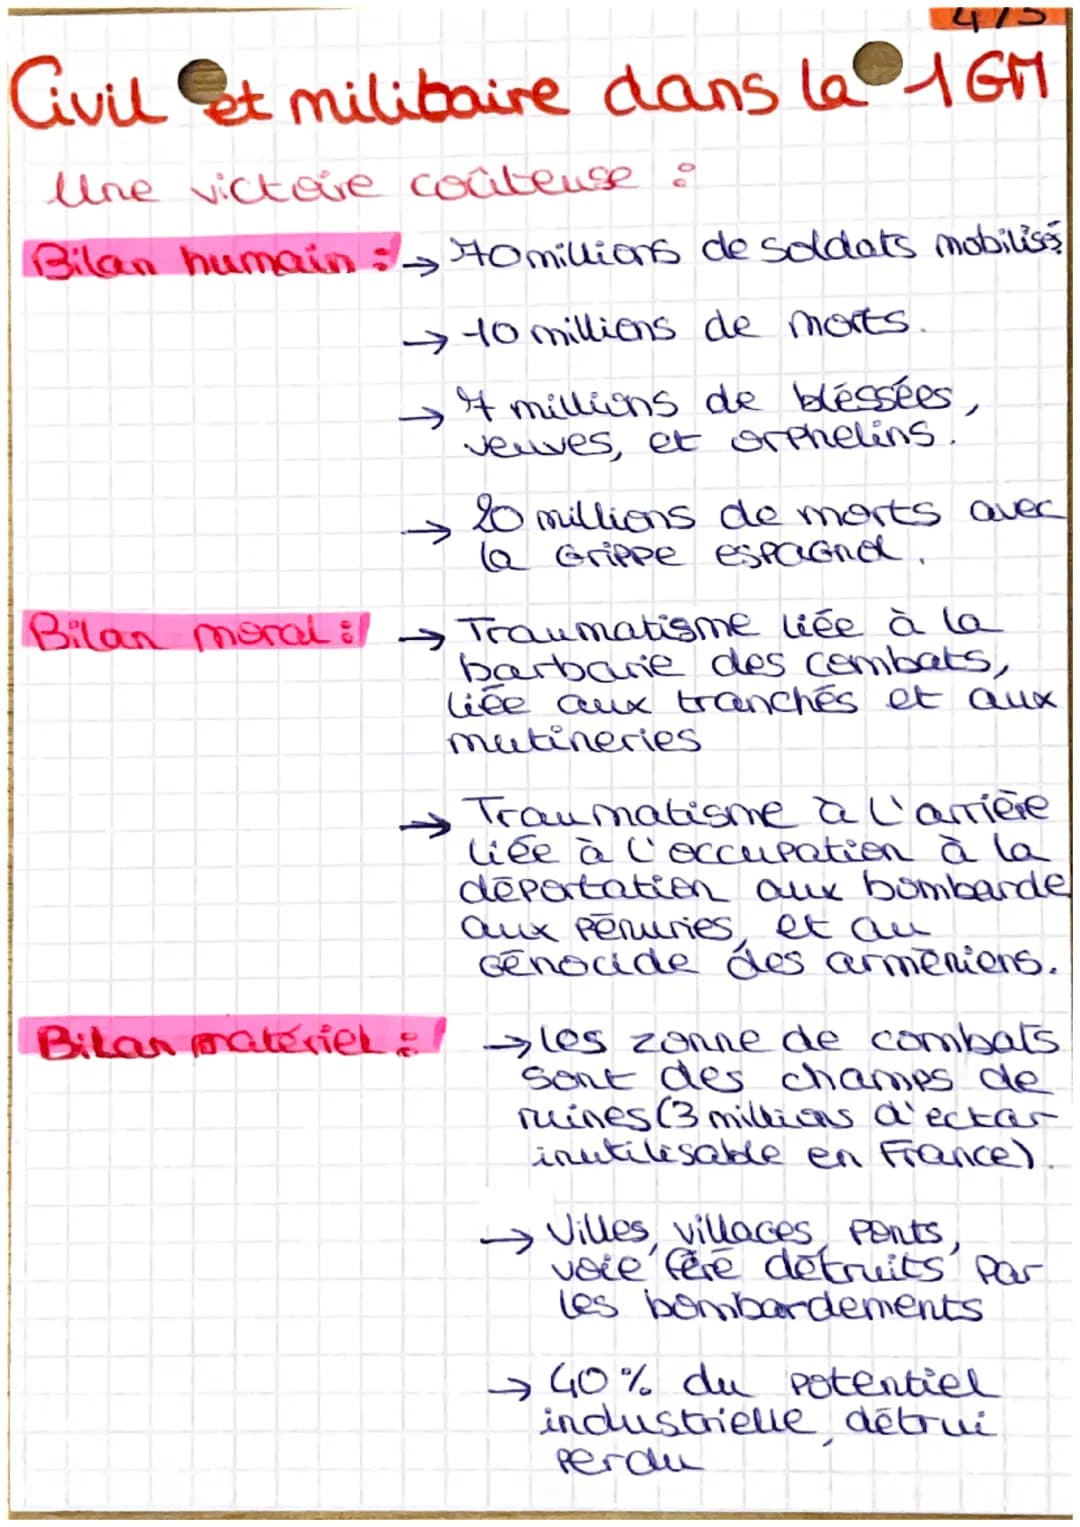 4/5
Civil et militaire dans la 1GM
Une victoire coûteuse :
Bilan humain : → 70 millions de soldats mobilisés
→ 10 millions de morts.
→ 7 millions de bléssées,
veuves, et orphelins.
→ 20 millions de morts avec
la Grippe espagnol.
Bilan moral : → Traumatisme liée à la
barbarie des combats,
liée aux tranchés et aux
mutineries
→ Traumatisme à l'arrière
liée à l'occupation à la
déportation aux bombarde
aux pénuries, et au
Génocide des arméniens.
Bilan matériel : → les zonne de combats
sont des champs de
ruines (3 millions d'ectar
inutilisable en France).
→ Villes, villages, ponts,
voie féré détruits par
les bombardements
→ 40% du potentiel
industrielle, détrui
perdu